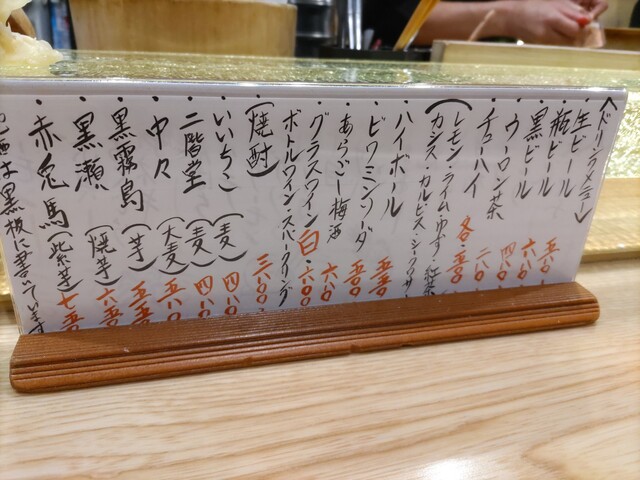 〈ドリンクメニュー〉
・生ビール
・瓶ビール
・黒ビール
・ウーロン茶
・チューハイ
(レモン・ライム・ゆず・紅茶
カシス・カルピス・シークワサー
・ハイボール 五五〇
・ビワミンソーダ 五五〇
・あらごし梅酒 六〇〇
・グラスワイン 白・六〇〇
ボトルワイン・スパークリング 三八〇〇
(焼酎)
・いいちこ(麦) 四八〇
・二階堂(麦) 四八〇
・中々(大麦) 五八〇
・黒霧島(芋) 五五〇
・黒瀬(焼芋) 六五〇
・赤兎馬(紫芋) 七五〇
酒は黒板に書いてます